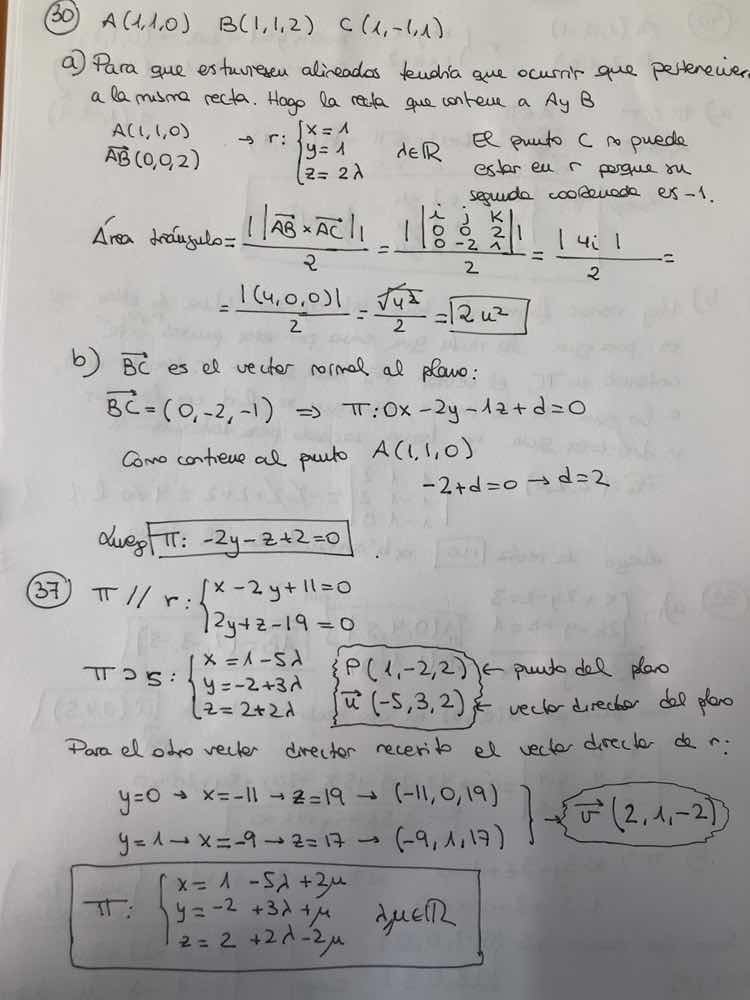 30 A(1,1,0) B(1,1,2) C(1,-1,1)
a) Para que estuviesen alineados tendría que ocurrir que pertenecieran
a la misma recta. Hago la recta que contiene a A y B
A(1,1,0) → r: { x=1
AB(0,0,2) y=1 λ∈ℝ El punto C no puede
z=2λ estar en r porque su
segunda coordenada es -1.
Área triángulo = | |AB × AC| | / 2 = | |i j k; 0 0 2; 0 -2 1| | / 2 = |4i| / 2 =
= |(4,0,0)| / 2 = √4² / 2 = 2u²
b) BC es el vector normal al plano:
BC = (0,-2,-1) ⇒ π: 0x-2y-1z+d=0
Como contiene al punto A(1,1,0)
-2+d=0 → d=2
Luego π: -2y-z+2=0.
37 π // r: { x-2y+11=0
2y+z-19=0
π ⊃ s: { x=1-5λ P(1,-2,2) ← punto del plano
y=-2+3λ
z=2+2λ u(-5,3,2) ← vector director del plano
Para el otro vector director necesito el vector director de r:
y=0 → x=-11 → z=19 → (-11,0,19)
→ v(2,1,-2)
y=1 → x=-9 → z=17 → (-9,1,17)
π: { x= 1 -5λ+2μ
y= -2 +3λ+μ λ,μ∈ℝ
z= 2 +2λ-2μ